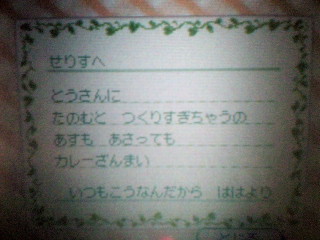 せりすへ
とうさんに
たのむと　つくりすぎちゃうの
あすも　あさっても
カレーざんまい
いつもこうなんだから　ははより